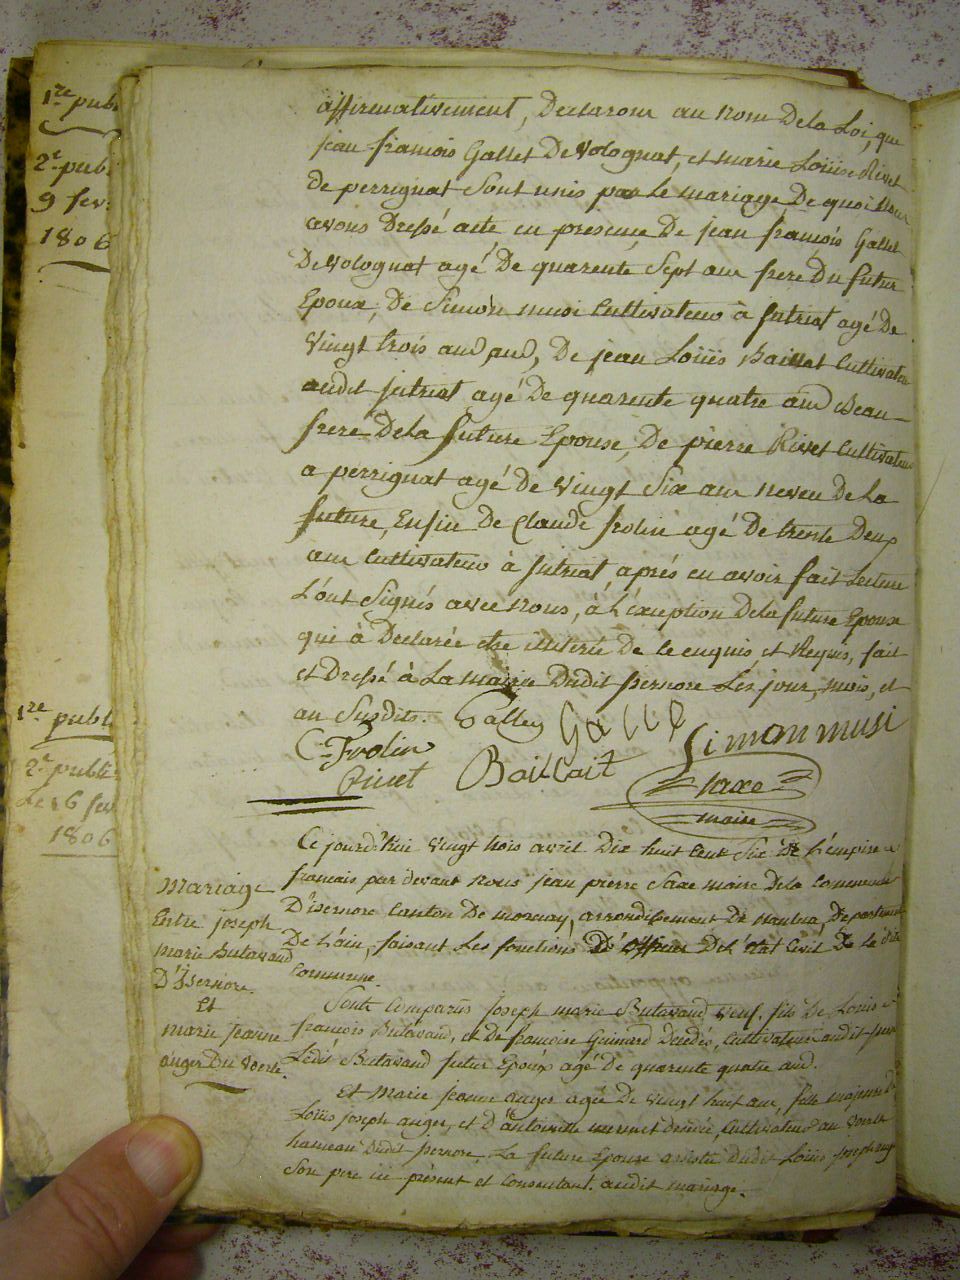 1re publ
2e publ
9 fevr
1806
1re publ
2e public
Le 16 fev
1806
affirmativement, Declarons au Nom De la Loi, que
jean françois Gallet De Volognat, et marie Loüise Rivet
de perrignat Sont unis par Le mariage De quoi Nous
avons Dressé acte en presence De jean françois Gallet
De Volognat agé De quarente Sept ans frere Du futur
Epoux, De Simon musi Cultivateur à jntriat agé De
Vingt trois ans, De jean Loüis Baillat Cultivateur
audit jntriat agé De quarente quatre ans Beau-
frere De la future Epouse, De pierre Rivet Cultivateur
a perrignat agé de Vingt Six ans neveu De La
future, Enfin De Claude frolin agé De trente Deux
ans Cultivateur à jntriat, aprés en avoir fait Lecture
L'ont Signés avec Nous, à L'éxception De la future Epouse
qui à Declarée etre illiterée De ce enquis, et Requis, fait
et Dressé à La mairie Dudit jsernore Les jour, mois, et
an Susdits. Gallet Gallet
Simon musi
C. Frolin
Rivet Baillait
Saxe
maire
Ce jourd'hui Vingt trois avril Dix huit Cent Six De L'émpire
francais par devant Nous jean pierre Saxe maire De la Commune
D'isernore Canton De mornay, arrondissement De nantua, Departement
De L'ain, faisant Les fonctions D'officier De L'état Civil De la dite
Commune.
Mariage
Entre joseph
marie Butavand
D'Jsernore.
Et
marie jeanne
auger Du Voerle.
Sont Comparûs joseph marie Butavand Veuf, fils De Louis
françois Butavand, et De francoise Guinard Decedés, Cultivateur audit
Ledit Butavand futur Epoux agé De quarente quatre ans.
Et Marie jeanne auger agée De Vingt huit ans, fille majeure De
Loüis joseph auger, et D'antoinette decedée, Cultivateur au Voerle
hameau Dudit jsernore, La future Epouse assistée Dudit Loüis joseph auger
Son pere ici présent et Consentant audit mariage.